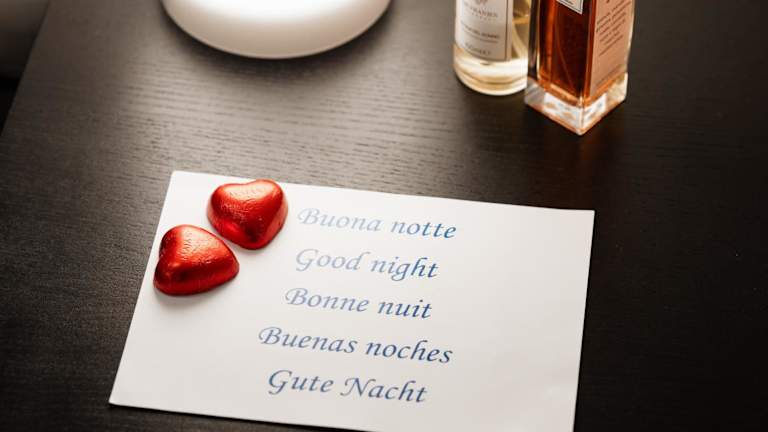 Buona notte
Good night
Bonne nuit
Buenas noches
Gute Nacht